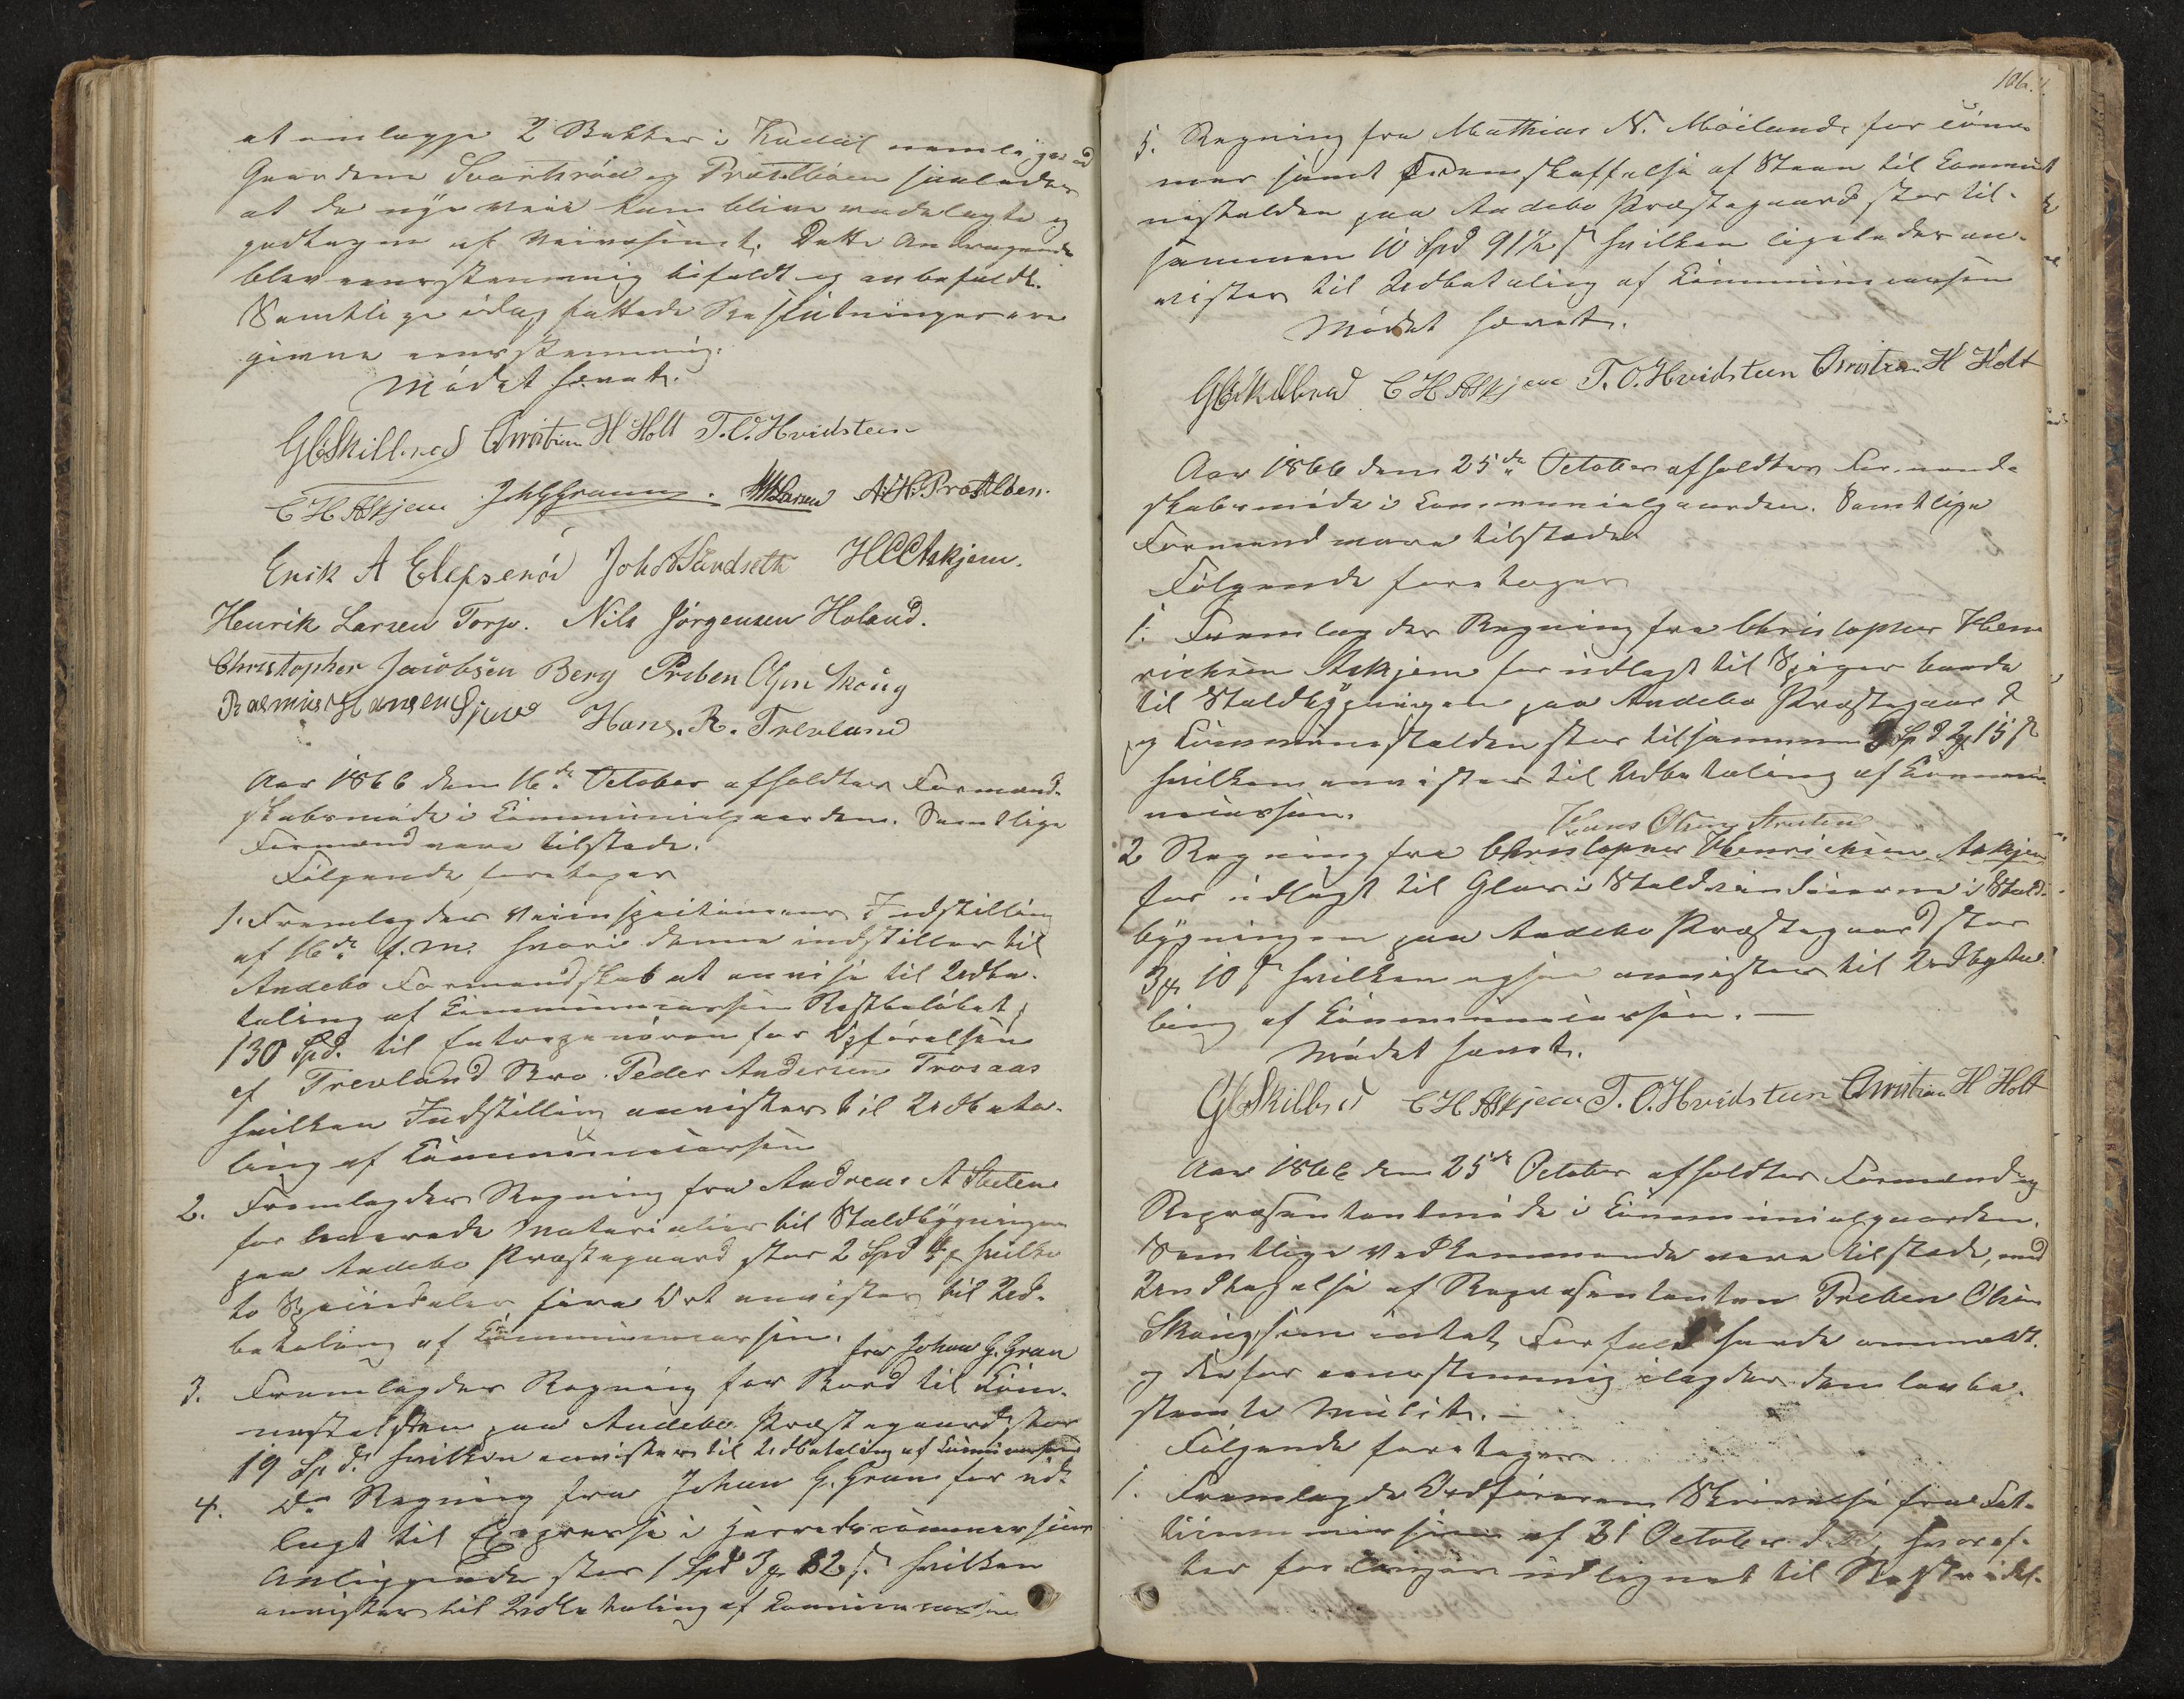 at omlægge 2 Bakker i Kodal nemlig ved
Gaardene Svartsrød og Prestbøen saaledes
at de nye Veie kan blive vedtagte og
godtagne af Veivæsenet. Dette Andragende
blev eenstemmig bifaldt og anbefaldt.
Samtlige idag fattede Beslutninger ere
givne eenstemmig.
Mødet hævet.
GCSkilbred Christian H Holt T. O. Hvidsteen
C H Askjem Joh G Gran. MLarsen A. H. Præstbøen.
Erik A Elepserød Joh A Sundseth H C C Askjem.
Henrik Larsen Torp. Nils Jörgensen Holand.
Christopher Jacobsen Berg Preben Olsen Skoug
Rasmus Hansen Hans. R. Trevland
Aar 1866 den 16de October afholdtes Formand-
skabsmøde i Communialgaarden. Samtlige
Formænd vare tilstede.
Følgende foretoges
1. Fremlagdes Veiinspecteurens Indstilling
af 16de f. m. hvori denne indstiller til
Andebo Formandskab at anvise til Udbe-
taling af Communecassen Restbeløbet
130 Spd. til Entreprenøren for Opførelsen
af Trevland Bro Peder Andersen Trosaas
hvilken Indstilling anvistes til Udbeta-
ling af Communecassen
2. Fremlagdes Regning fra Andreas A Stulen
for leverede Materialier til Staldbygningen
paa Andebo Præstegaard stor 2 Spd 4 hvilke
to Speciedaler fire Ort anvistes til Ud-
betaling af Communecassen.
fra Johan G. Gran
3. Fremlagdes Regning for Bord til Com-
munestalden paa Andebo Præstegaard stor
19 Spd. hvilken anvistes til Udbetaling af Communecassen
4. Do Regning fra Johan G. Gran for ud-
lagt til Expresse i Herredscommissions
Anliggende stor 1 Spd 3 22 s. hvilken
anvistes til Udbetaling af Communecassen
106.
5. Regning fra Mathias N. Møiland for
samt Fremskaffelse af Steen til Commu-
nestalden paa Andebo Præstegaard stor til-
sammen 10 Spd 91½ s hvilken ligeledes an-
vistes til Udbetaling af Communecassen
Mødet hævet.
GCSkilbred C H Askjem T. O. Hvidsteen Christian H Holt
Aar 1866 den 25de October afholdtes Formand-
skabsmøde i Communialgaarden. Samtlige
Formænd vare tilstede
Følgende foretoges
1. Fremlagdes Regning fra Christopher Hen
richsen Askjem for udlagt til Spiger baade
til Staldbygningen paa Andebo Præstegaard
og Communestalden stor tilsammen Spd 15 s
hvilken anvistes til Udbetaling af Commu-
necassen.
Hans Olsen
2 Regning fra Christopher Henrichsen Askjem
for udlagt til Glas i Staldvinduerne i Stald-
bygningen paa Andebo Præstegaard stor
3 10 s hvilken ogsaa anvistes til Udbeta-
ling af Communecassen. —
Mødet hævet.
GCSkilbred C H Askjem T. O. Hvidsteen Christian H Holt
Aar 1866 den 25de October afholdtes Formænd og
Repræsentantmøde i Communialgaarden.
Samtlige Vedkommende vare tilstede, med
Undtagelse af Repræsentanten Preben Olsen
Skoug som intet Forfald havde anmeldt
og derfor eenstemmig ilagdes den lovbe-
stemte Mulct. —
Følgende foretoges
1. Fremlagde Ordføreren Skrivelse fra Fat-
tigcommissionen af 21 October d. A., hvoref-
ter forlanges udlignet til